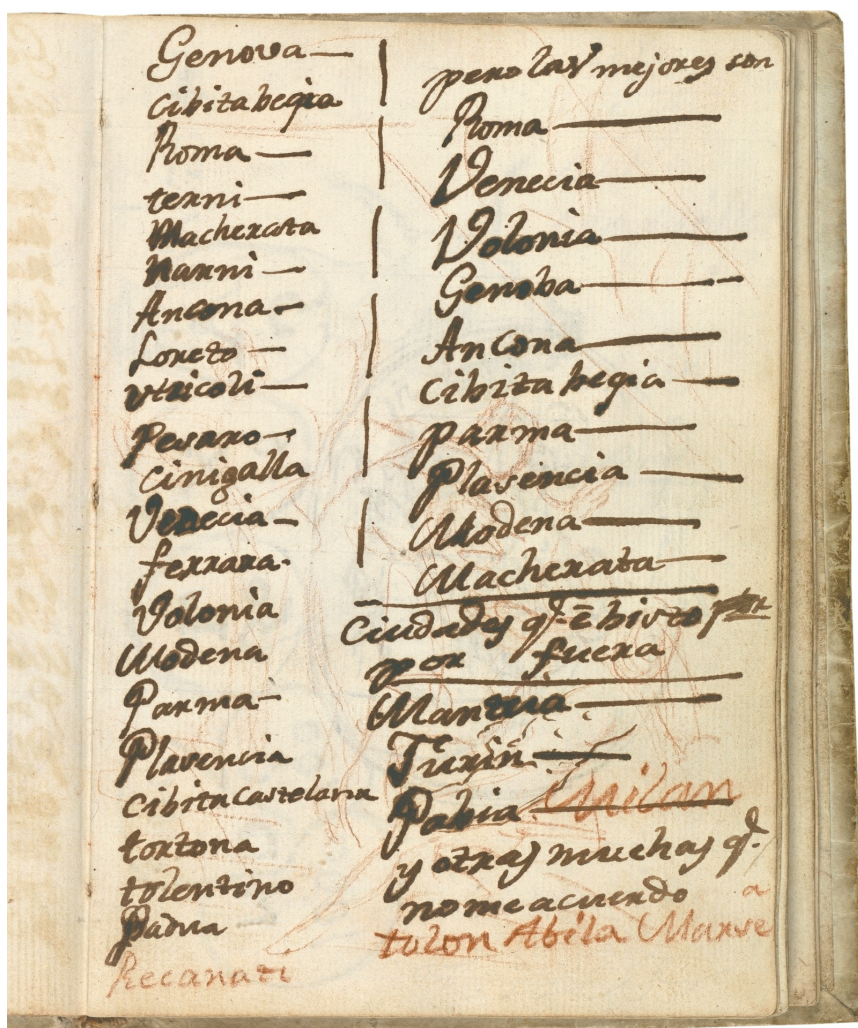 Genova
Cibitabegia
Roma
terni
Macherata
Narni
Ancona
Loreto
Utricoli
Pesaro
Cinigalla
Venecia
ferrara
Volonia
Modena
Parma
Plasencia
Cibita Castelana
tortona
tolentino
Padua
Recanati
pero las mejores son
Roma
Venecia
Volonia
Genoba
Ancona
Cibita begia
parma
Plasencia
Modena
Macherata
Ciudades q.e ê bisto
por fuera
Mantua
Turin
Pabia Milan
y otras muchas q.e
no me acuerdo
tolon Abila Marse
a